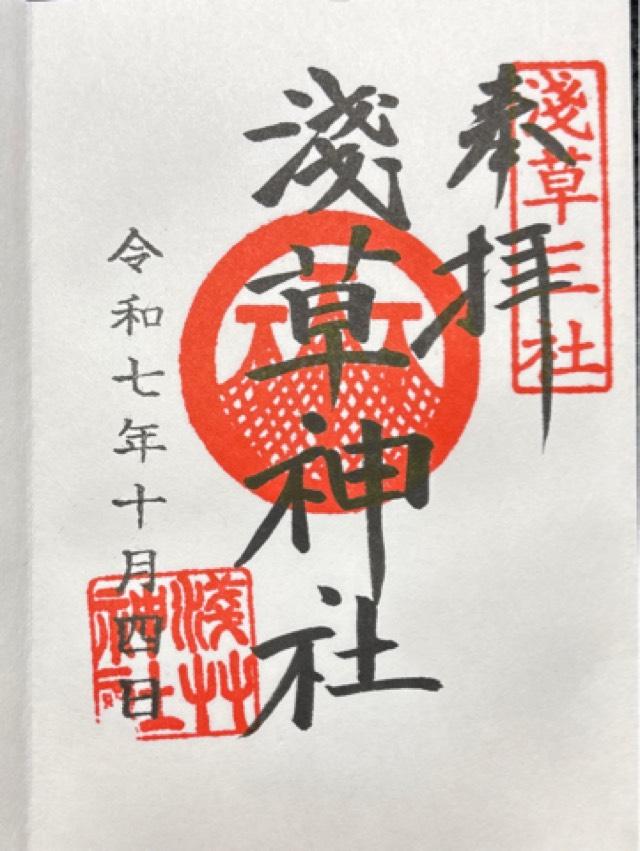 奉拝
淺草三社
淺草神社
令和七年十月四日
淺草
神社